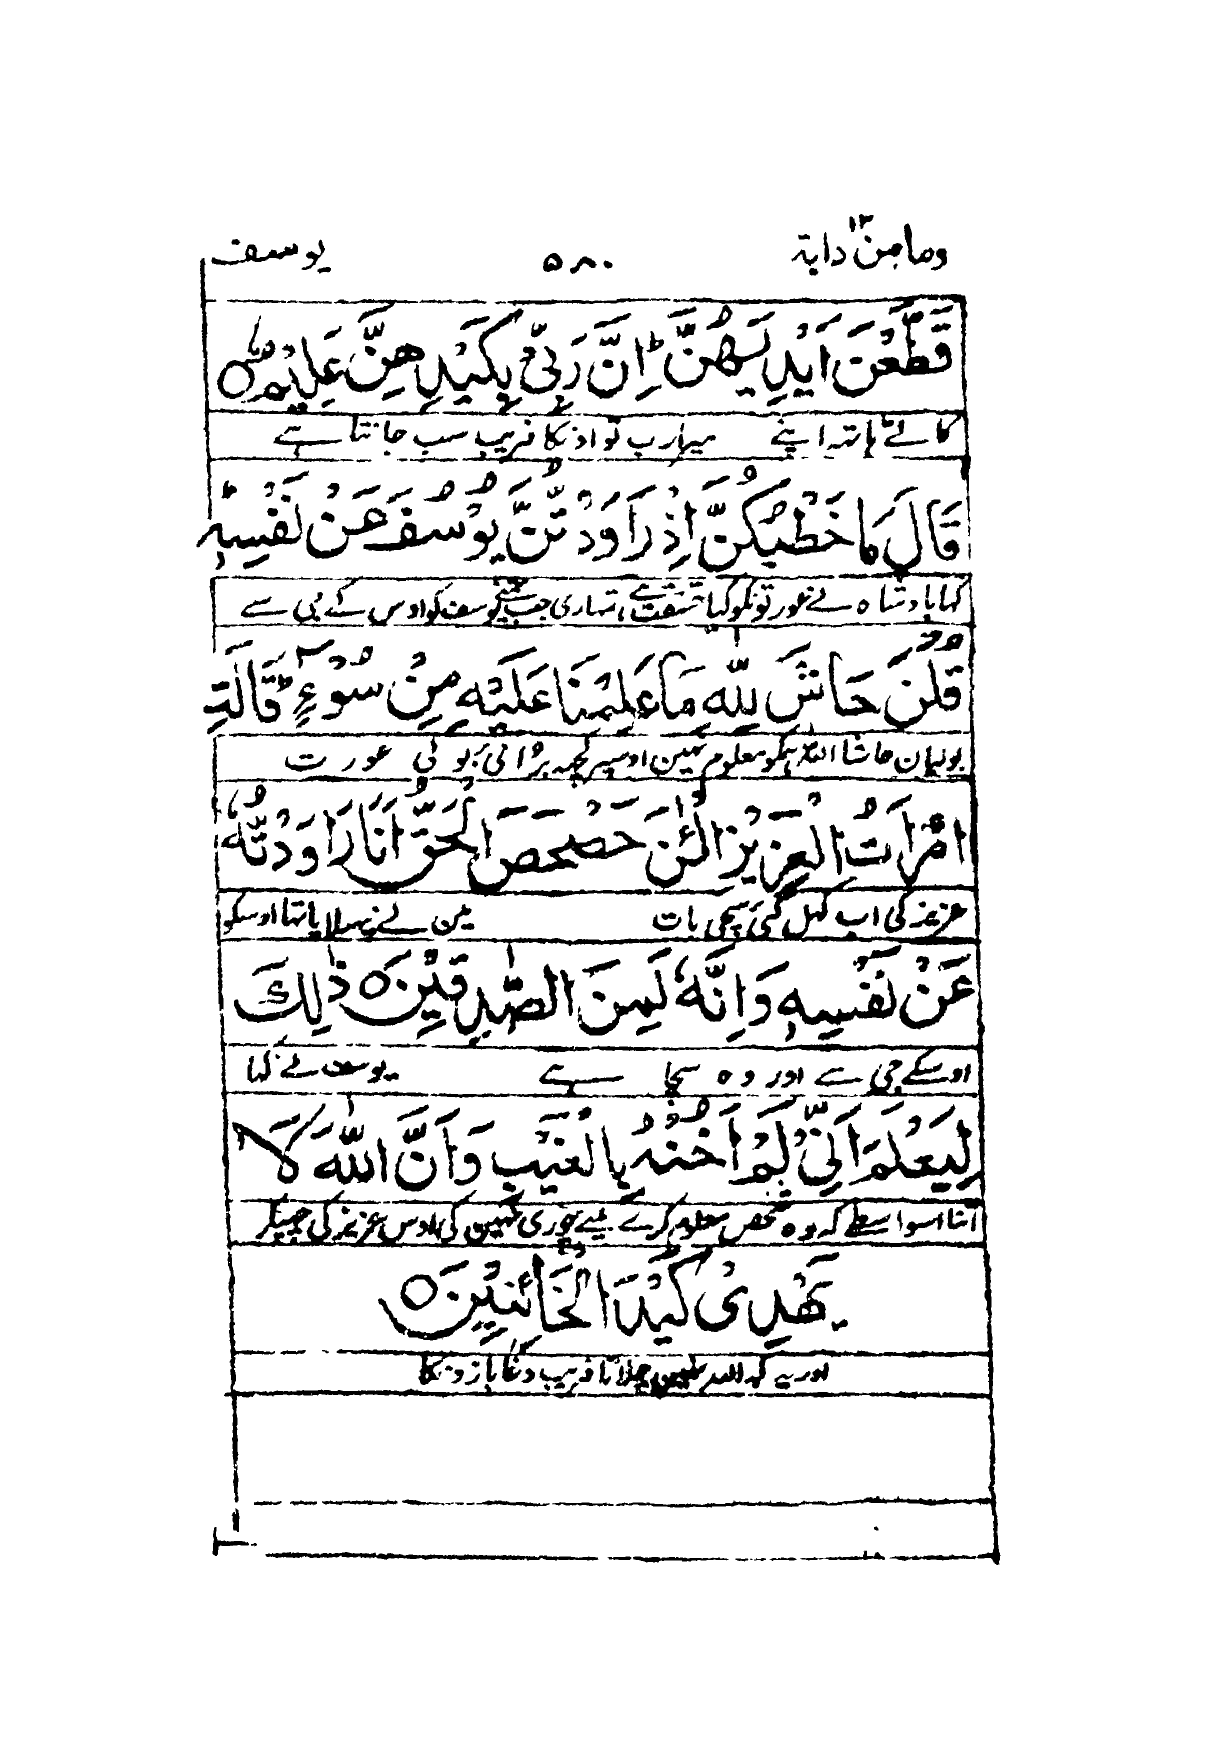 وما من دابۃ ۱۲ ۵۸۰ یوسف
قَطَّعْنَ اَيْدِيَهُنَّ ؕ اِنَّ رَبِّيْ بِكَيْدِهِنَّ عَلِيْمٌ ○
کاٹے ہاتہ اپنے میرا رب تو اونکا فریب سب جانتا ہے
قَالَ مَا خَطْبُكُنَّ اِذْ رَاوَدْتُّنَّ يُوْسُفَ عَنْ نَفْسِهٖ ؕ
کہا بادشاہ نے عورتونکو کیا حقیقت ہے تمہاری جب تمنے یوسف کو اوس کے جی سے
قُلْنَ حَاشَ لِلّٰهِ مَا عَلِمْنَا عَلَيْهِ مِنْ سُوْٓءٍ ؕ قَالَتِ
بولیان حاشا اللہ ہمکو معلوم نہین اوسپر کچہہ برائی بولی عورت
امْرَاَتُ الْعَزِيْزِ الْـٰٔنَ حَصْحَصَ الْحَقُّ اَنَا رَاوَدْتُّهٗ
عزیز کی اب کہل گئی سچی بات مین نے پہسلایا تہا اوسکو
عَنْ نَفْسِهٖ وَاِنَّهٗ لَمِنَ الصّٰدِقِيْنَ ○ ذٰلِكَ
اوسکے جی سے اور وہ سچا ہے یوسف نے کہا
لِيَعْلَمَ اَنِّيْ لَمْ اَخُنْهُ بِالْغَيْبِ وَاَنَّ اللّٰهَ لَا
اتنا اسواسطے کہ وہ شخص معلوم کرے مینے چوری نہین کی اوس عزیز کی چہپکر
يَهْدِيْ كَيْدَ الْخَآئِنِيْنَ ○
اور یہ کہ اللہ نہین چلاتا فریب دغابازونکا